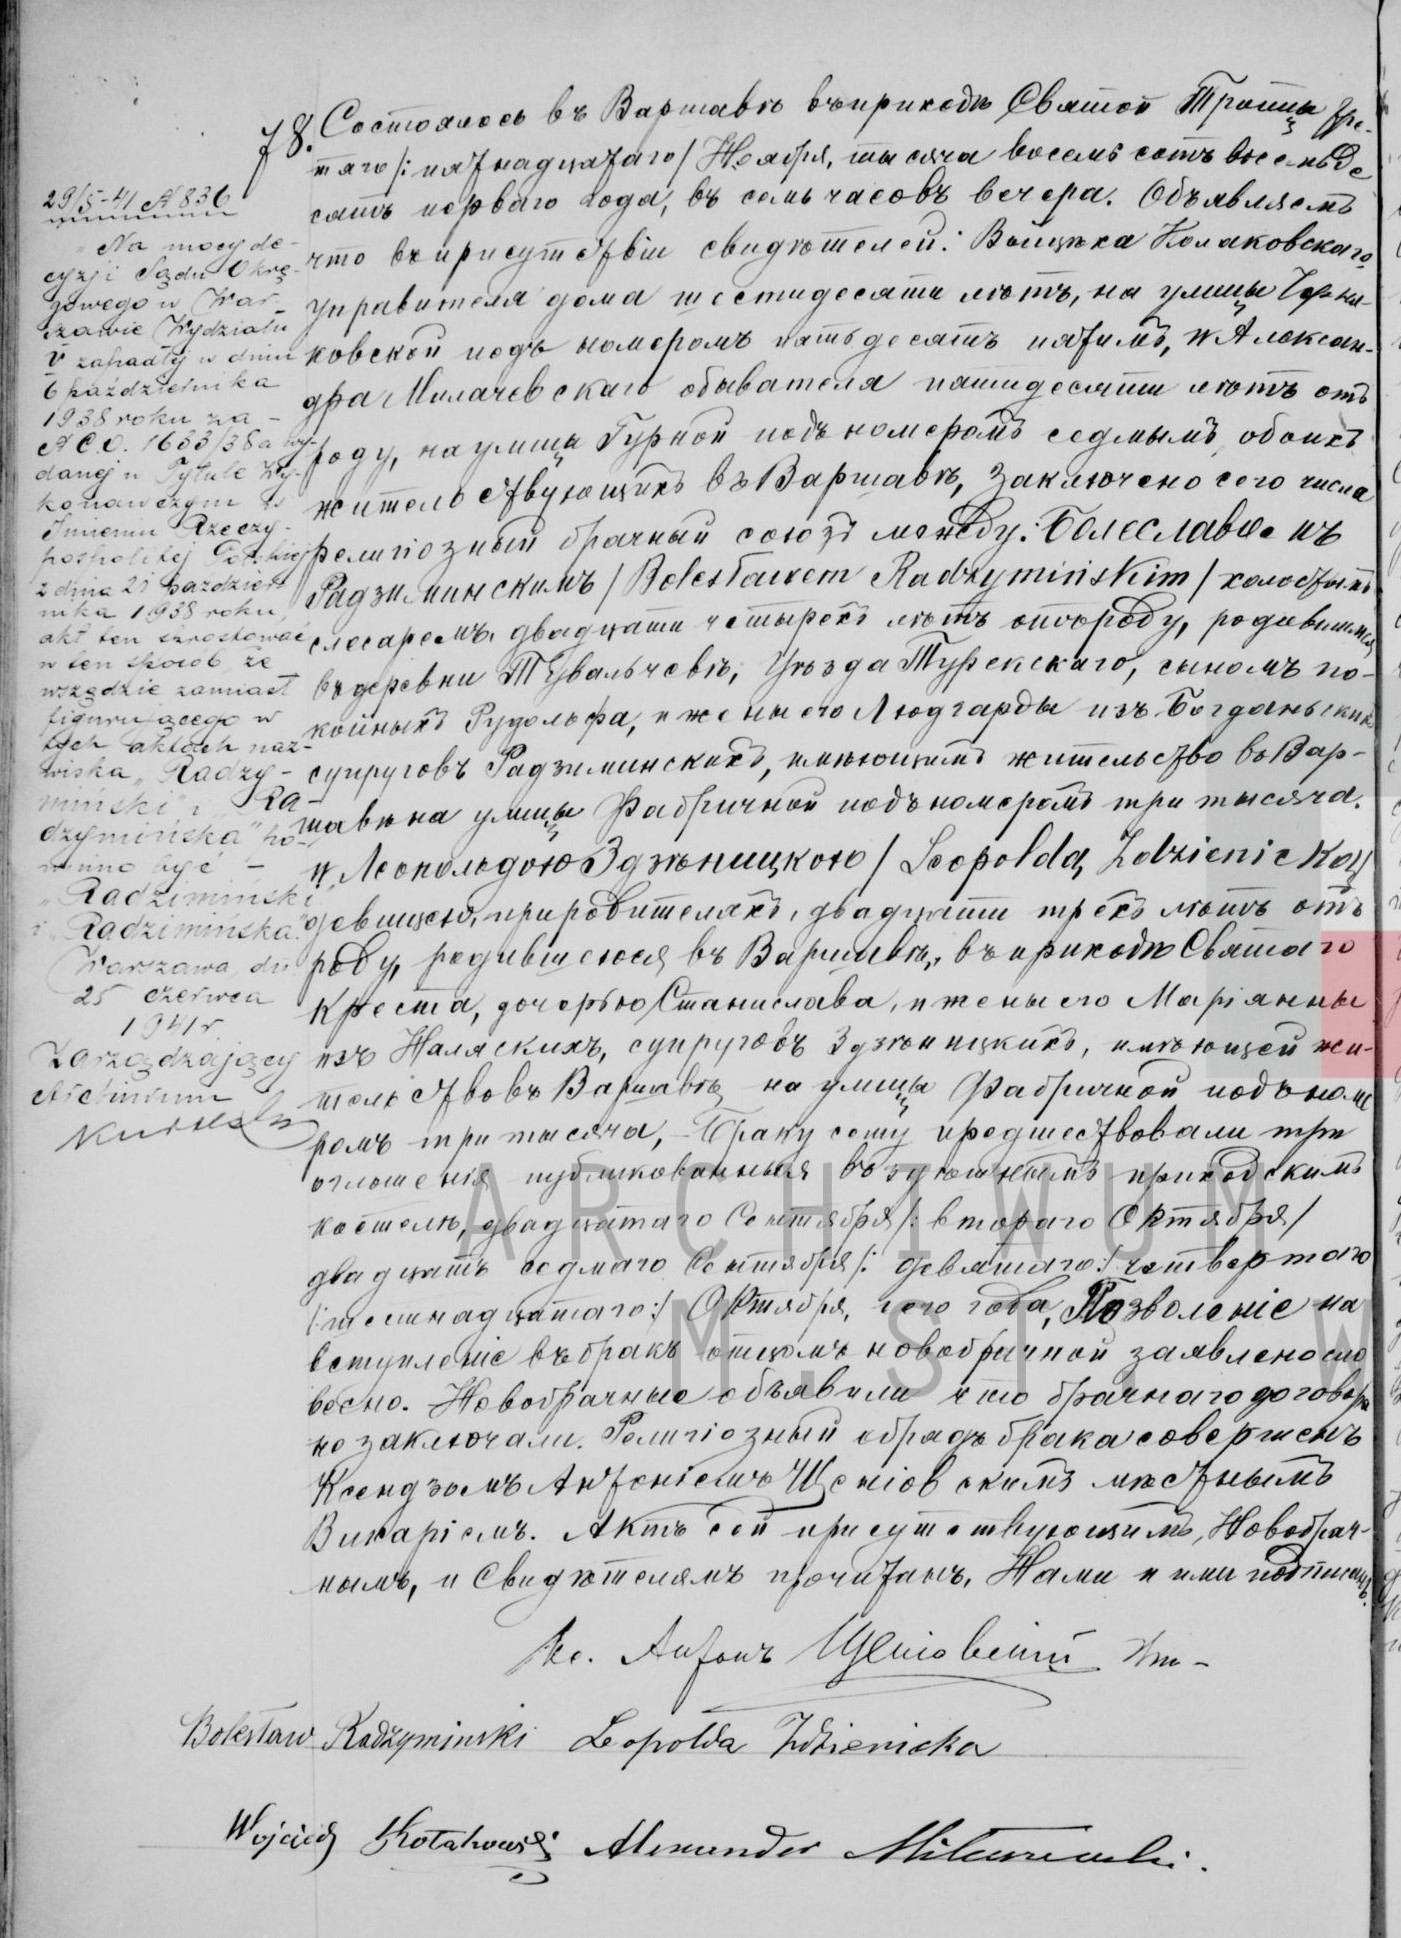 78. Состоялось въ Варшавѣ въ приходѣ Святой Троицы тре-
тяго /: пятнадцатаго / Ноября, тысяча восемь сотъ восемьде
сятъ перваго года, въ семь часовъ вечера. Объявляемъ
что въ присутствіи свидѣтелей: Войцѣха Колаковскаго
управителя дома шестидесяти лѣтъ, на улицы Черня-
ковской подъ номеромъ пятьдесятъ пятымъ, и Алексан-
дра Милачевскаго обывателя пятидесяти лѣтъ отъ
роду, на улицы Гурной подъ номеромъ седмымъ, обоихъ
жительствующихъ въ Варшавѣ, заключено сего числа
религіозный брачный союзъ между: Болеславомъ
Радзиминскимъ / Bolesławem Radzymińskim / холостымъ
слесаремъ, двадцати четырехъ лѣтъ отъ роду, родившимся
въ деревни, Уѣзда Турекскаго, сыномъ по-
койныхъ Рудольфа, и жены его Людгарды изъ Богданьскихъ
супруговъ Радзиминскихъ, имѣющимъ жительство въ Вар-
шавѣ на улицы Фабричной подъ номеромъ три тысяча.
и Леопольдою Здзѣницкою / Leopoldą Zdzienicką /
девицею, при родителяхъ, двадцати трехъ лѣтъ отъ
роду, родившеюся въ Варшавѣ, въ приходѣ Святаго
Креста, дочерью Станислава, и жены его Маріянны
изъ Наляскихъ, супруговъ Здзѣницкихъ, имѣющей жи-
тельство въ Варшавѣ на улицы Фабричной подъ номе
ромъ три тысяча, – Браку сему предшествовали три
оглошенія публикованныя въ здѣшнымъ приходскимъ
костелѣ, двадцатаго Сентября /: втораго Октября /
двадцать седмаго Сентября /: девятаго :/ четвертаго
/: шеснадцатаго :/ Октября, сего года, Позволеніе на
вступленіе въ бракъ отцомъ новобрачной заявлено сло
весно. Новобрачные объявили что брачнаго договора
не заключали. Религіозный обрядъ брака совершенъ
Ксендзомъ Антоніемъ Щеніовскимъ мѣстнымъ
Викаріемъ. Актъ сей присутствующимъ, Новобрач-
нымъ, и Свидѣтелямъ прочитанъ, Нами и ими подписанъ.
Кс. Антонъ
Bolesław Radzymiński Leopolda Zdzienicka
Wojciech Kołakowski Alexander Milaczewski.
29/5-41 A 836
Na mocy de-
cyzji Sądu Okrę-
gowego w War-
szawie Wydziału
V zapadłej w dniu
6 października
1938 roku za –
1633/38 a wy-
danej w Tytule Wy-
konawczym w
Imieniu Rzeczy-
pospolitej Polskiej
z dnia 21 paździer-
nika 1938 roku
akt ten sprostować
w ten sposób, że
wszędzie zamiast
figurującego w
tych aktach naz-
wiska „Radzy-
miński" i „Ra-
dzymińska" po-
winno być –
„Radzimiński"
i „Radzimińska".
Warszawa, dn.
25 czerwca
1941 r.
Zarządzający
Archiwum
ARCHIWUM
M. ST. W